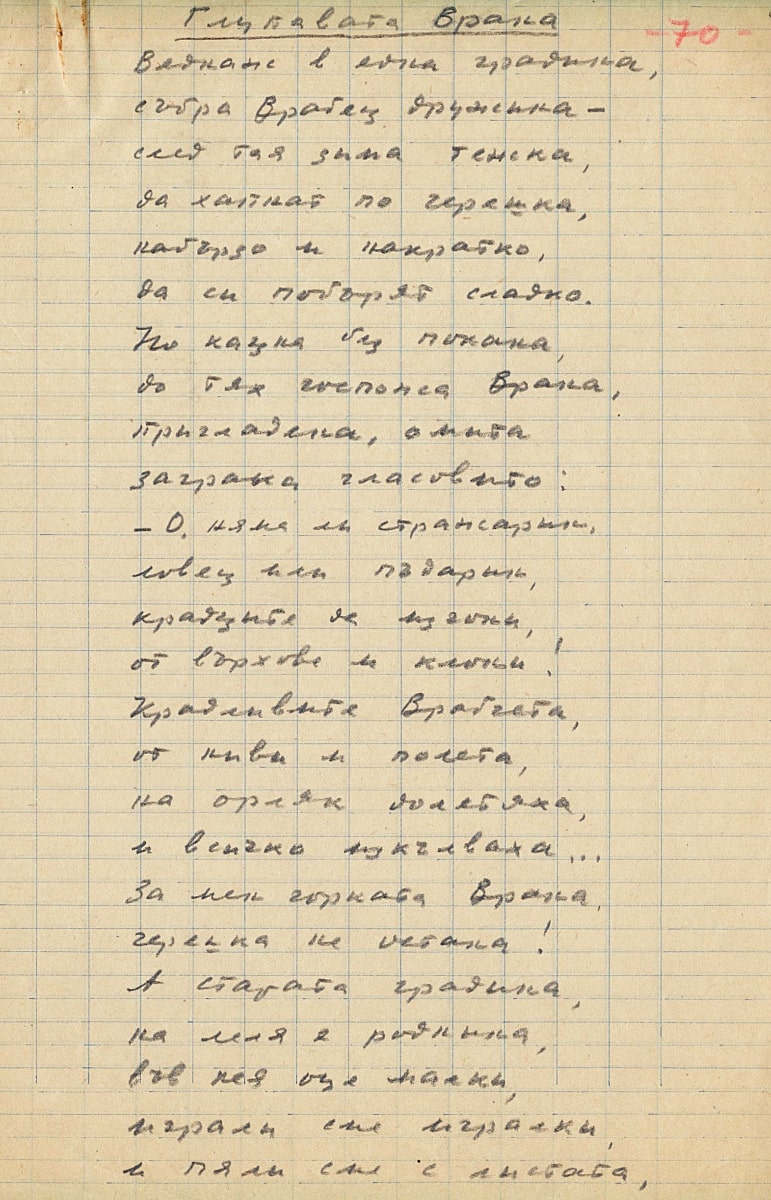 Глупавата Врана
-70-
Веднаж в една градина,
събра Врабец дружина –
след тая зима тежка,
да хапнат по черешка,
набързо и накратко,
да си побъбрят сладко.
Но кацна без покана,
до тях госпожа Врана,
пригладена, омита
заграка гласовито:
– О, няма ли стражарин,
ловец или пъдарин,
крадците да изгони,
от върхове и клони!
Крадливите Врабчета,
от ниви и полета,
на орляк долетяха,
и всичко изкълваха...
За мен горката Врана,
черешка не остана!
А старата градина,
на леля е роднина,
във нея още малки,
играли сме игралки,
и пяли сме с листата,